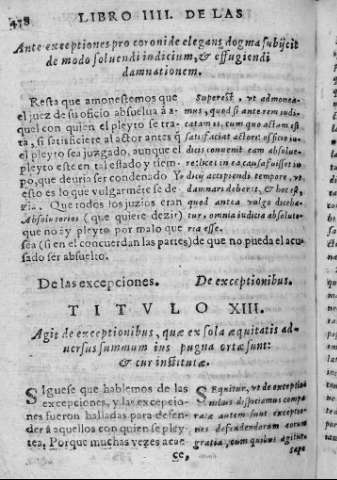 478
LIBRO IIII. DE LAS
Ante exceptiones pro coronide elegans dogma subijcit
de modo soluendi iudicium, & effugiendi
damnationem.
Resta que amonestemos que
el juez de su oficio absuelua à a-
quel con quien el pleyto se tra-
ta, si satisficiere al actor antes q̃
el pleyto sea juzgado, aunque el
pleyto este en tal estado y tiem-
po, que deuria ser condenado Y
esto es lo que vulgarmẽte se de-
zia. Que todos los juzios eran
Absolutorios (que quiere dezir)
que no ay pleyto por malo que
sea (si en el concuerdan las partes) de que no pueda el acu
sado ser absuelto.
Superest, vt admonea-
mus, quod si ante rem iudi-
catam is, cum quo actum est
satisfaciat actori: officio iu-
dicis conuenit eum absolue-
re: licet in ea causa fuisset in
iudicij accipiendi tempore, vt
damnari deberet, & hoc est,
quod antea vulgo diceba-
tur, omnia iudicia absoluto-
ria esse.
De las excepciones.
De exceptionibus.
TITVLO XIII.
Agit de exceptionibus, quæ ex sola æquitatis ad-
uersus summum ius pugna ortæ sunt:
& cur institutæ.
Siguese que hablemos de las
excepciones, y las excepcio-
nes fueron halladas para defen-
der à aquellos con quien se pley
tea. Porque muchas vezes acae-
ce,
Sequitur, vt de exceptio
nibus dispiciamus compa-
ratæ autem sunt exceptio-
nes defendendorum eorum
gratia, cum quibus agitur
sæpe